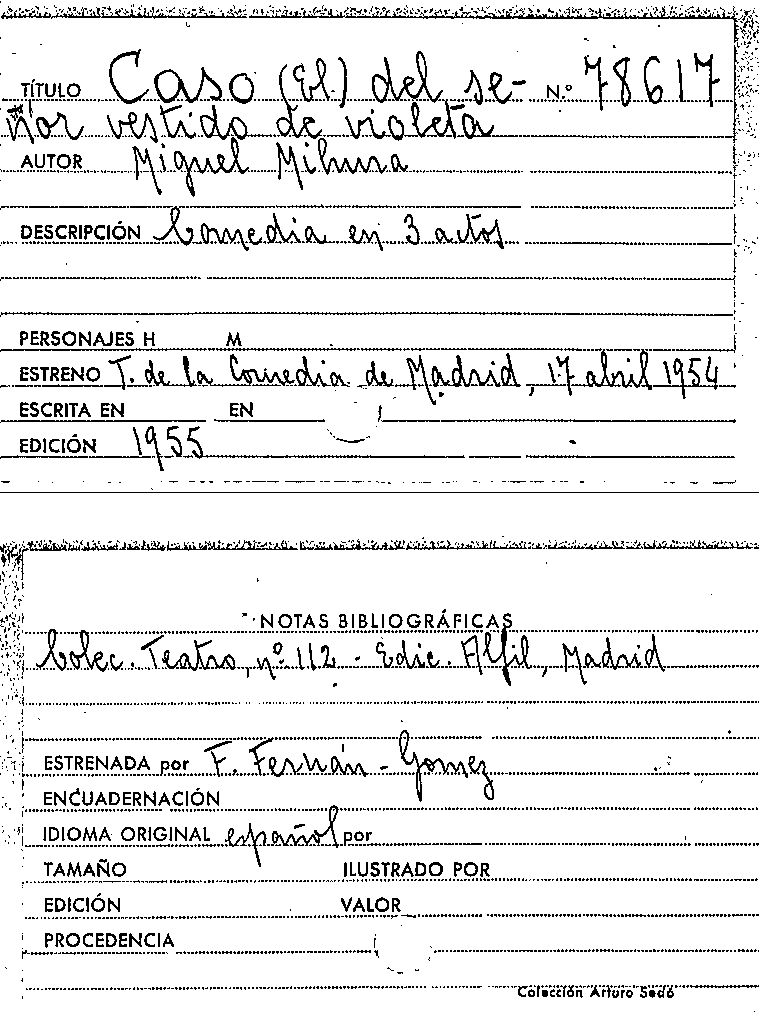 TÍTULO Caso (El) del se- N.º 78617
ñor vestido de violeta
AUTOR Miguel Mihura
DESCRIPCIÓN Comedia en 3 actos
PERSONAJES H M
ESTRENO T. de la Comedia de Madrid, 17 abril 1954
ESCRITA EN EN
EDICIÓN 1955
NOTAS BIBLIOGRÁFICAS
Colec. Teatro, nº 112 - Edic. Alfil, Madrid
ESTRENADA por F. Fernán - Gomez
ENCUADERNACIÓN
IDIOMA ORIGINAL español por
TAMAÑO ILUSTRADO POR
EDICIÓN VALOR
PROCEDENCIA
Colección Arturo Sedó